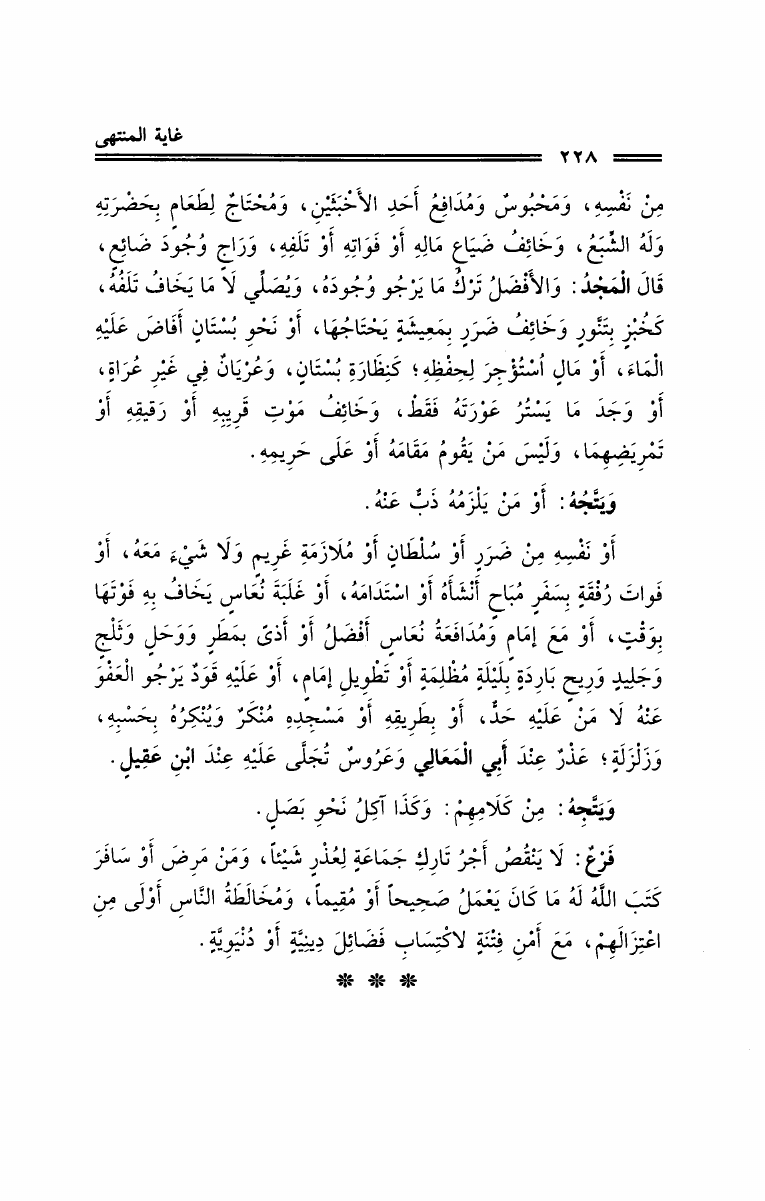 غاية المنتهى
٢٢٨
مِنْ نَفْسِهِ، وَمَحْبُوسٌ وَمُدَافِعُ أَحَدِ الأَخْبَثَيْنِ، وَمُحْتَاجٌ لِطَعَامٍ بِحَضْرَتِهِ
وَلَهُ الشِّبَعُ، وَخَائِفُ ضَيَاعِ مَالِهِ أَوْ فَوَاتِهِ أَوْ تَلَفِهِ، وَرَاجٍ وُجُودَ ضَائِعٍ،
قَالَ الْمَجْدُ: وَالأَفْضَلُ تَرْكُ مَا يَرْجُو وُجُودَهُ، وَيُصَلِّي لَا مَا يَخَافُ تَلَفُهُ،
كَخُبْزٍ بِتَنُّورٍ وَخَائِفُ ضَرَرٍ بِمَعِيشَةٍ يَحْتَاجُهَا، أَوْ نَحْوِ بُسْتَانٍ أَفَاضَ عَلَيْهِ
الْمَاءَ، أَوْ مَالٍ اُسْتُؤْجِرَ لِحِفْظِهِ؛ كَنِظَارَةِ بُسْتَانٍ، وَعُرْيَانٌ فِي غَيْرِ عُرَاةٍ،
أَوْ وَجَدَ مَا يَسْتُرُ عَوْرَتَهُ فَقَطْ، وَخَائِفُ مَوْتِ قَرِيبِهِ أَوْ رَقِيقِهِ أَوْ
تَمْرِيضِهِمَا، وَلَيْسَ مَنْ يَقُومُ مَقَامَهُ أَوْ عَلَى حَرِيمِهِ.
وَيَتَّجُهُ: أَوْ مَنْ يَلْزَمُهُ ذَبٌّ عَنْهُ.
أَوْ نَفْسِهِ مِنْ ضَرَرٍ أَوْ سُلْطَانٍ أَوْ مُلَازَمَةِ غَرِيمٍ وَلَا شَيْءَ مَعَهُ، أَوْ
فَوَاتَ رُفْقَةٍ بِسَفَرٍ مُبَاحٍ أَنْشَأَهُ أَوْ اسْتَدَامَهُ، أَوْ غَلَبَةَ نُعَاسٍ يَخَافُ بِهِ فَوْتَهَا
بِوَقْتٍ، أَوْ مَعَ إِمَامٍ وَمُدَافَعَةُ نُعَاسٍ أَفْضَلُ أَوْ أَذىً بمَطَرٍ وَوَحَلٍ وَثَلْجٍ
وَجَلِيدٍ وَرِيحٍ بَارِدَةٍ بِلَيْلَةٍ مُظْلِمَةٍ أَوْ تَطْوِيلِ إمَامٍ، أَوْ عَلَيْهِ قَوَدٌ يَرْجُو الْعَفْوَ
عَنْهُ لَا مَنْ عَلَيْهِ حَدٌّ، أَوْ بِطَرِيقِهِ أَوْ مَسْجِدِهِ مُنْكَرٌ وَيُنْكِرُهُ بِحَسْبِهِ،
وَزَلْزَلَةٍ؛ عَذْرٌ عِنْدَ أَبِي الْمَعَالِي وَعَرُوسٌ تُجَلَّى عَلَيْهِ عِنْدَ ابْنِ عَقِيلٍ.
وَيَتَّجِهُ: مِنْ كَلَامِهِمْ: وَكَذَا آكِلُ نَحْوِ بَصَلٍ.
فَرْعٌ: لَا يَنْقُصُ أَجْرُ تَارِكِ جَمَاعَةٍ لِعُذْرٍ شَيْئاً، وَمَنْ مَرِضَ أَوْ سَافَرَ
كَتَبَ اللَّهُ لَهُ مَا كَانَ يَعْمَلُ صَحِيحاً أَوْ مُقِيماً، وَمُخَالَطَةُ النَّاسِ أَوْلَى مِنِ
اعْتِزَالَهِمْ، مَعَ أَمْنِ فِتْنَةٍ لاكْتِسَابِ فَضَائِلَ دِينِيَّةٍ أَوْ دُنْيَوِيَّةٍ.